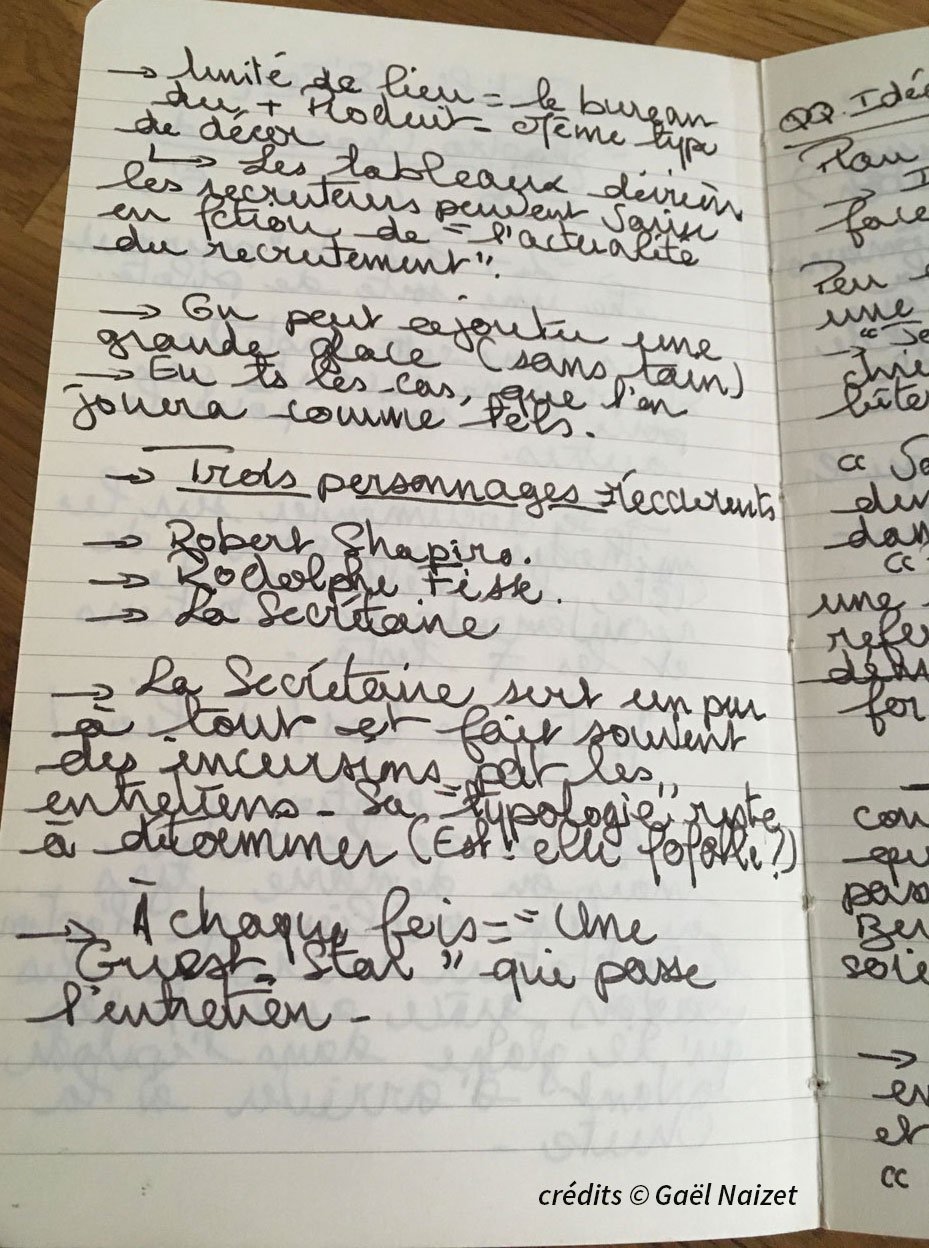 → Unité de lieu = le bureau
du + Produit - Même type
de décor
↳ Les tableaux derrière
les recruteurs peuvent varier
en fction de "l'actualité
du recrutement".
→ On peut rajouter une
grande glace (sans tain)
→ En ts les cas, que l'on
jouera comme tels.
→ Trois personnages réccurents
→ Robert Shapiro.
→ Rodolphe Fisse.
→ La Secrétaire
→ La Secrétaire sert un peu
à tout et fait souvent
des incursions pdt les
entretiens - Sa "typologie" reste
à déterminer (Est-elle fofolle?)
→ À chaque fois = "Une
Guest "Star" qui passe
l'entretien -
QQ. Idée
Plan
→ I
face
Peu
une
"Je
→
lute
cc So
du
dan
cc
une
refe
dehs
for
con
equ
pass
Ber
soie
→
en
et
cc
crédits © Gaël Naizet